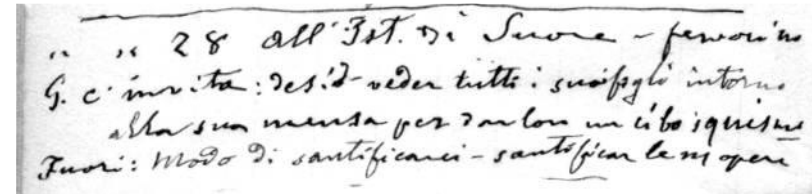 " " 28 all' Ist. di Suore - fervorino
G. c' invita: desid- veder tutti i suoi figli intorno
alla sua mensa per dar loro un cibo squisito
Fuori: Modo di santificarci - santificar le ns opere